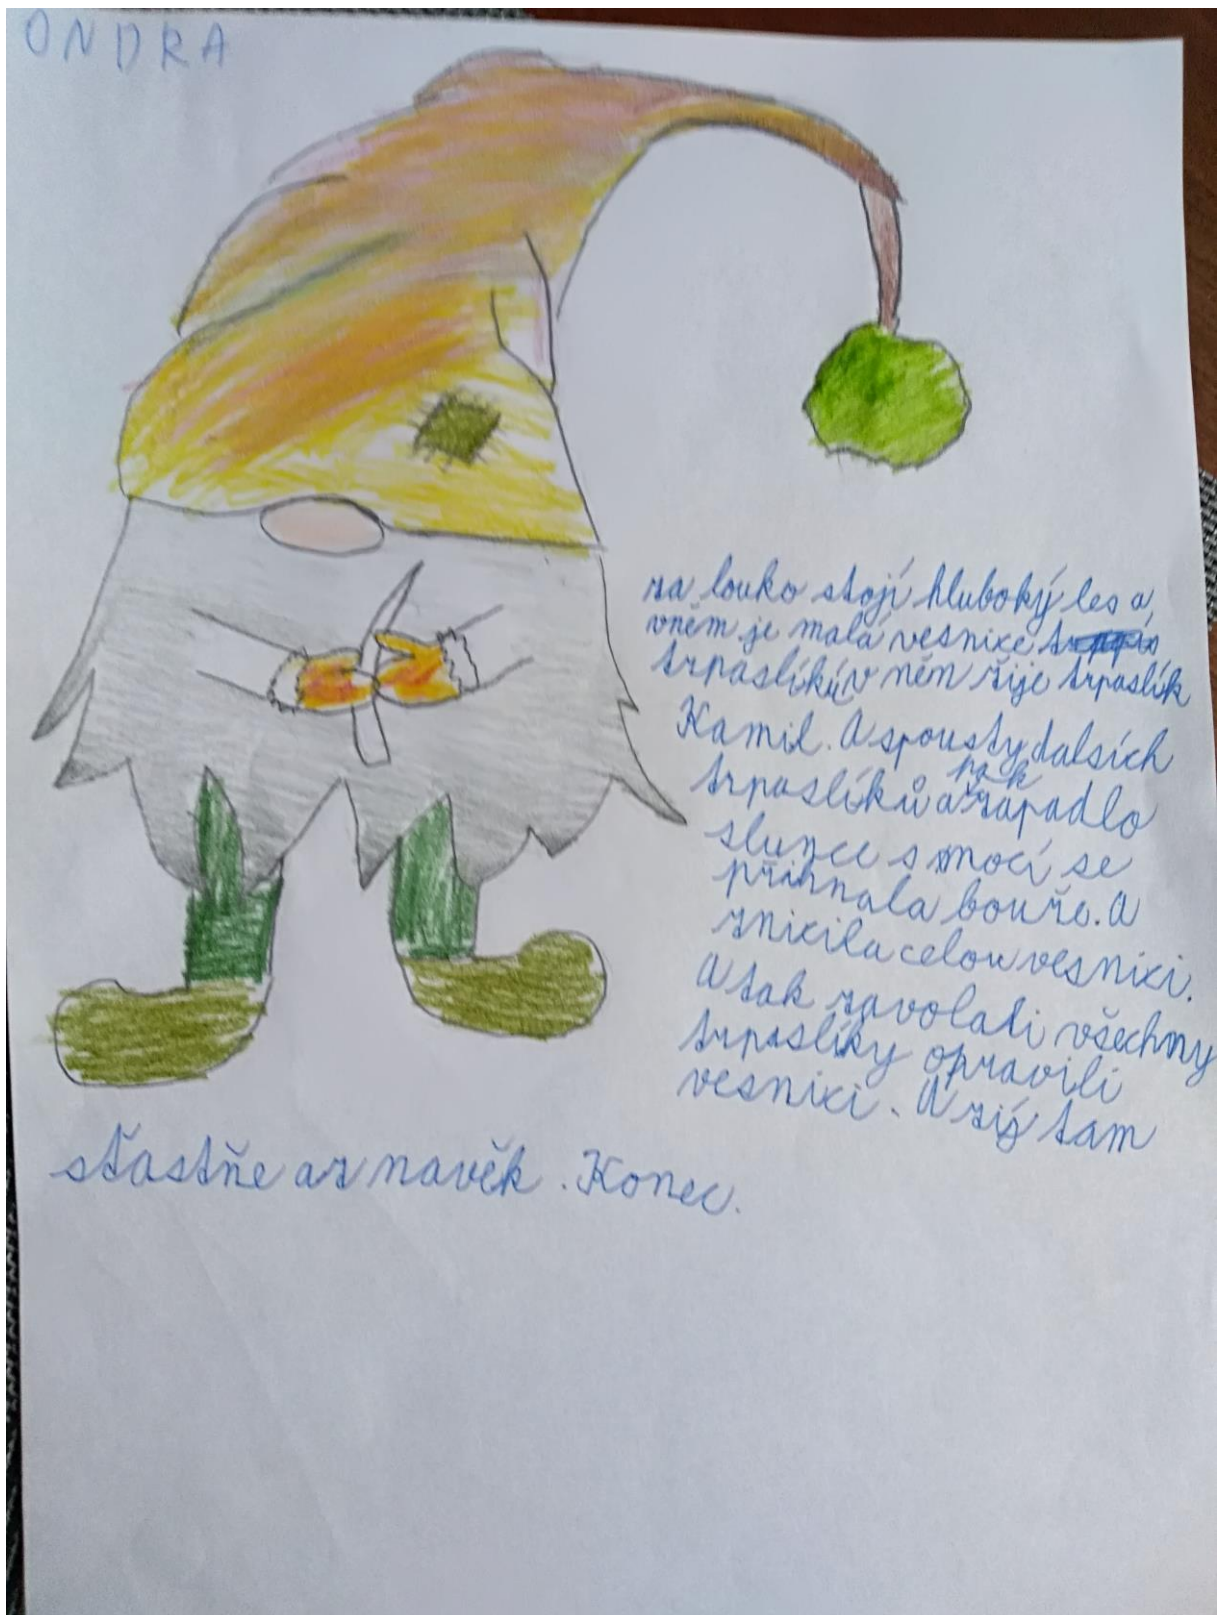 ONDRA
za louko stojí hluboký les a
vněm je malá vesnice
trpaslíkův něm žije trpaslík
Kamil. A spousty dalsích
pak
trpaslíků a zapadlo
slunce s mocí se
přihnala bouře. A
znicila celou vesnici.
A tak zavolali všechny
trpaslíky opravili
vesnici. A zijí tam
šťastňe az navěk. Konec.